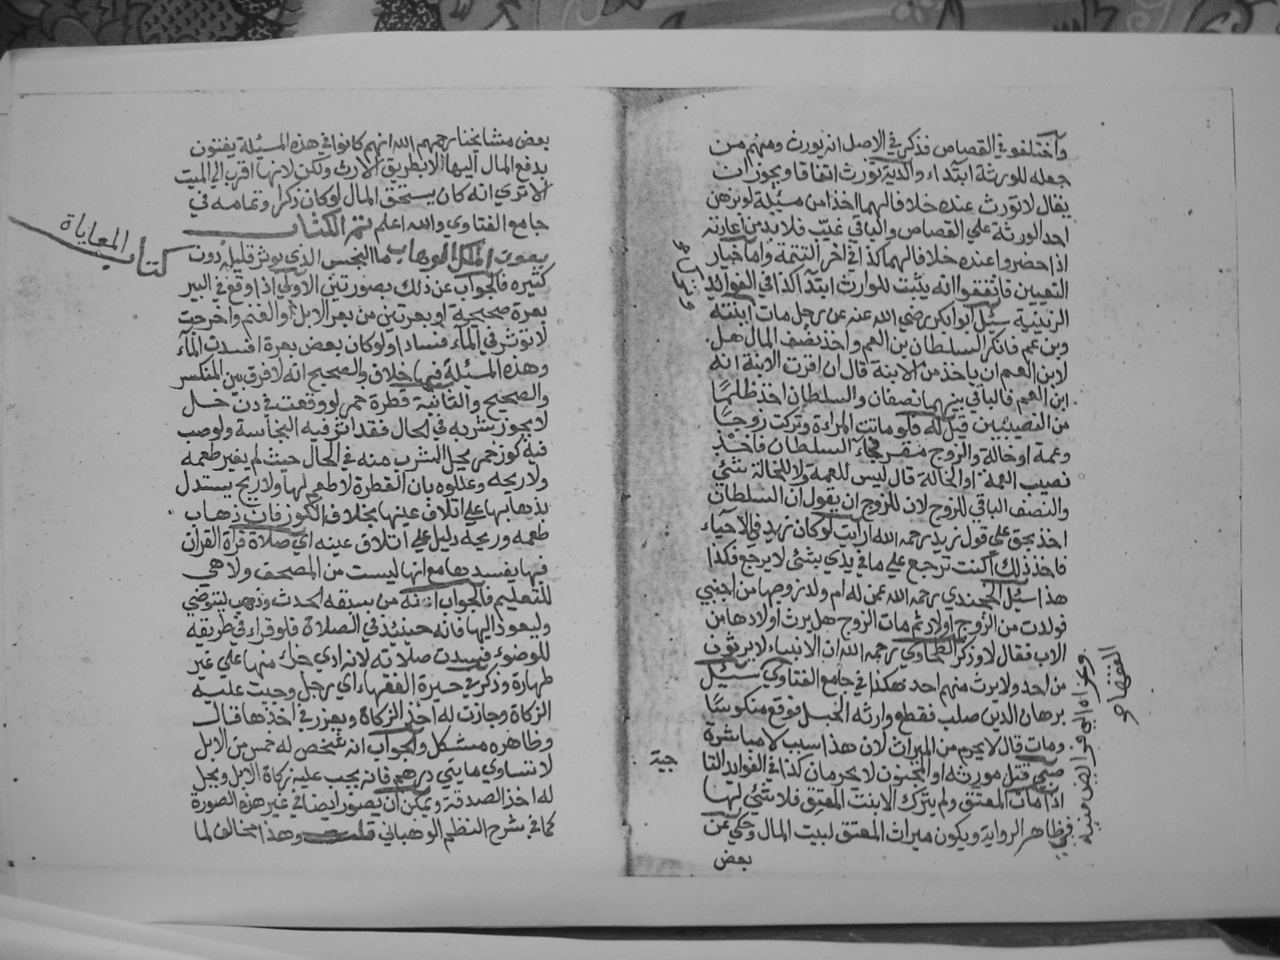 وآختلفو في القصاص فذكر في الاصل انه يورث ومنهم من
جعله للورثة ابتداء والدية تورث اتفاقا ويجوز ان
يقال لا تورث عنده خلافا لهما اخذا من مسئلة لو برهن
احد الورثة علي القصاص والباقي غيب فلا بد من اعادته
اذا حضروا عنده خلافا لهما كذا في آخر التتمة واما خيار
التعيين فاتفقوا انه يثبت للوارث ابتدآ كذا في الفوائد
الزينية سئل ابو بكر رضي الله عنه عن رجل مات ابنته
وبن عم فانكر السلطان بن العم واخذ نصف المال هل
لابن العم ان ياخذ من الابنة قال ان اقرت الابنة انه
ابن العم فالباقي بينهما نصفان والسلطان اخذ ظلما
من النصيبين قيل له فلو ماتت المراءة وتركت زوجا
وعمة او خالة والزوج مقر فجآء السلطان فاخذ
نصيب العمة او الخالة قال ليس للعمة ولا للخالة شئي
والنصف الباقي للزوج لان للزوج ان يقول ان السلطان
اخذ بحق علي قول زيد رحمه الله ارأيت لو كان زيد في الاحياء
فاخذ ذلك اكنت ترجع علي ما في يدي بشئي لا يرجع فكذا
هذا سئل الخجندي رحمه الله عمن له ام ولد زوجها من اجنبي
فولدت من الزوج اولاد ثم مات الزوج هل يرث اولادها من
الاب فقال لا وذكر الطحاوي رحمه الله ان الانبياء لا يرثون
من احد ولا يرث منهم احد هكذا في جامع الفتاوي سئيل
برهان الدين صلب فقطع وارثه الحبل فوقع منكوسا
ومات قال لا يحرم من الميراث لان هذا سبب لا مباشرة
صبي قتل مورثه او المجنون لا يحرمان كذا في الفوايد التا
جية
اذا مات المعتق ولم يترك الا بنت المعتق فلا شئي لها
في ظاهر الرواية ويكون ميراث المعتق لبيت المال وحكي عن
بعض
بعض مشايخنا رحمهم الله انهم كانوا في هذه المسئلة يفتون
بدفع المال اليها لا بطريق الارث ولكن لانها اقرب الي الميت
الا تري انه كان يستحق المال لو كان ذكرا وتمامه في
جامع الفتاوي والله اعلم تم الكتاب
بعون الملك الوهاب ما النجس الذي يوثر قليله دون
كتاب المعاياة
كثيره فالجواب عن ذلك بصورتين الاولي اذا وقع في البير
بعرة صحيحة او بعرتين من بعر الابل او الغنم واخرجت
لا توثر في المآء فسادا ولو كان بعض بعرة افسدت المآء
وهذه المسئلة فيها خلاف والصحيح انه لا فرق بين المنكسر
والصحيح والثانية قطرة خمر لو وقعت في دن خل
لا يجوز شربه في الحال فقد اثر فيه النجاسة ولو صب
فيه كوز خمر يحل الشرب منه في الحال حيث لم يغير طعمه
ولا ريحه وعللوه بان القطرة لا طعم لها ولا ريح يستدل
بذهابها علي اتلاف عينها بخلاف الكوز فان ذهاب
طعمه وريحه دليل علي اتلاف عينه اي صلاة قرآة القرآن
فيها يفسدها مع انها ليست من المصحف ولا هي
للتعليم فالجواب انه من سبقه الحدث وذهب يتوضي
وليعود اليها فانه حينئذ في الصلاة فلو قراء في طريقه
للوضوء فسدت صلاته لانه ادي جزاء منها علي غير
طهارة وذكر في حيرة الفقهاء اي رجل وجبت عليه
الزكاة وجازت له اخذ الزكاة ويعزر في اخذها قال
وظاهره مشكل والجواب انه شخص له خمس من الابل
لا تساوي مايتي درهم فانه يجب عليه زكاة الابل ويحل
له اخذ الصدقة ويمكن ان يصور ايضا في غير هذه الصورة
كما في شرح النظم الوهباني قلت وهذا مخالف لما